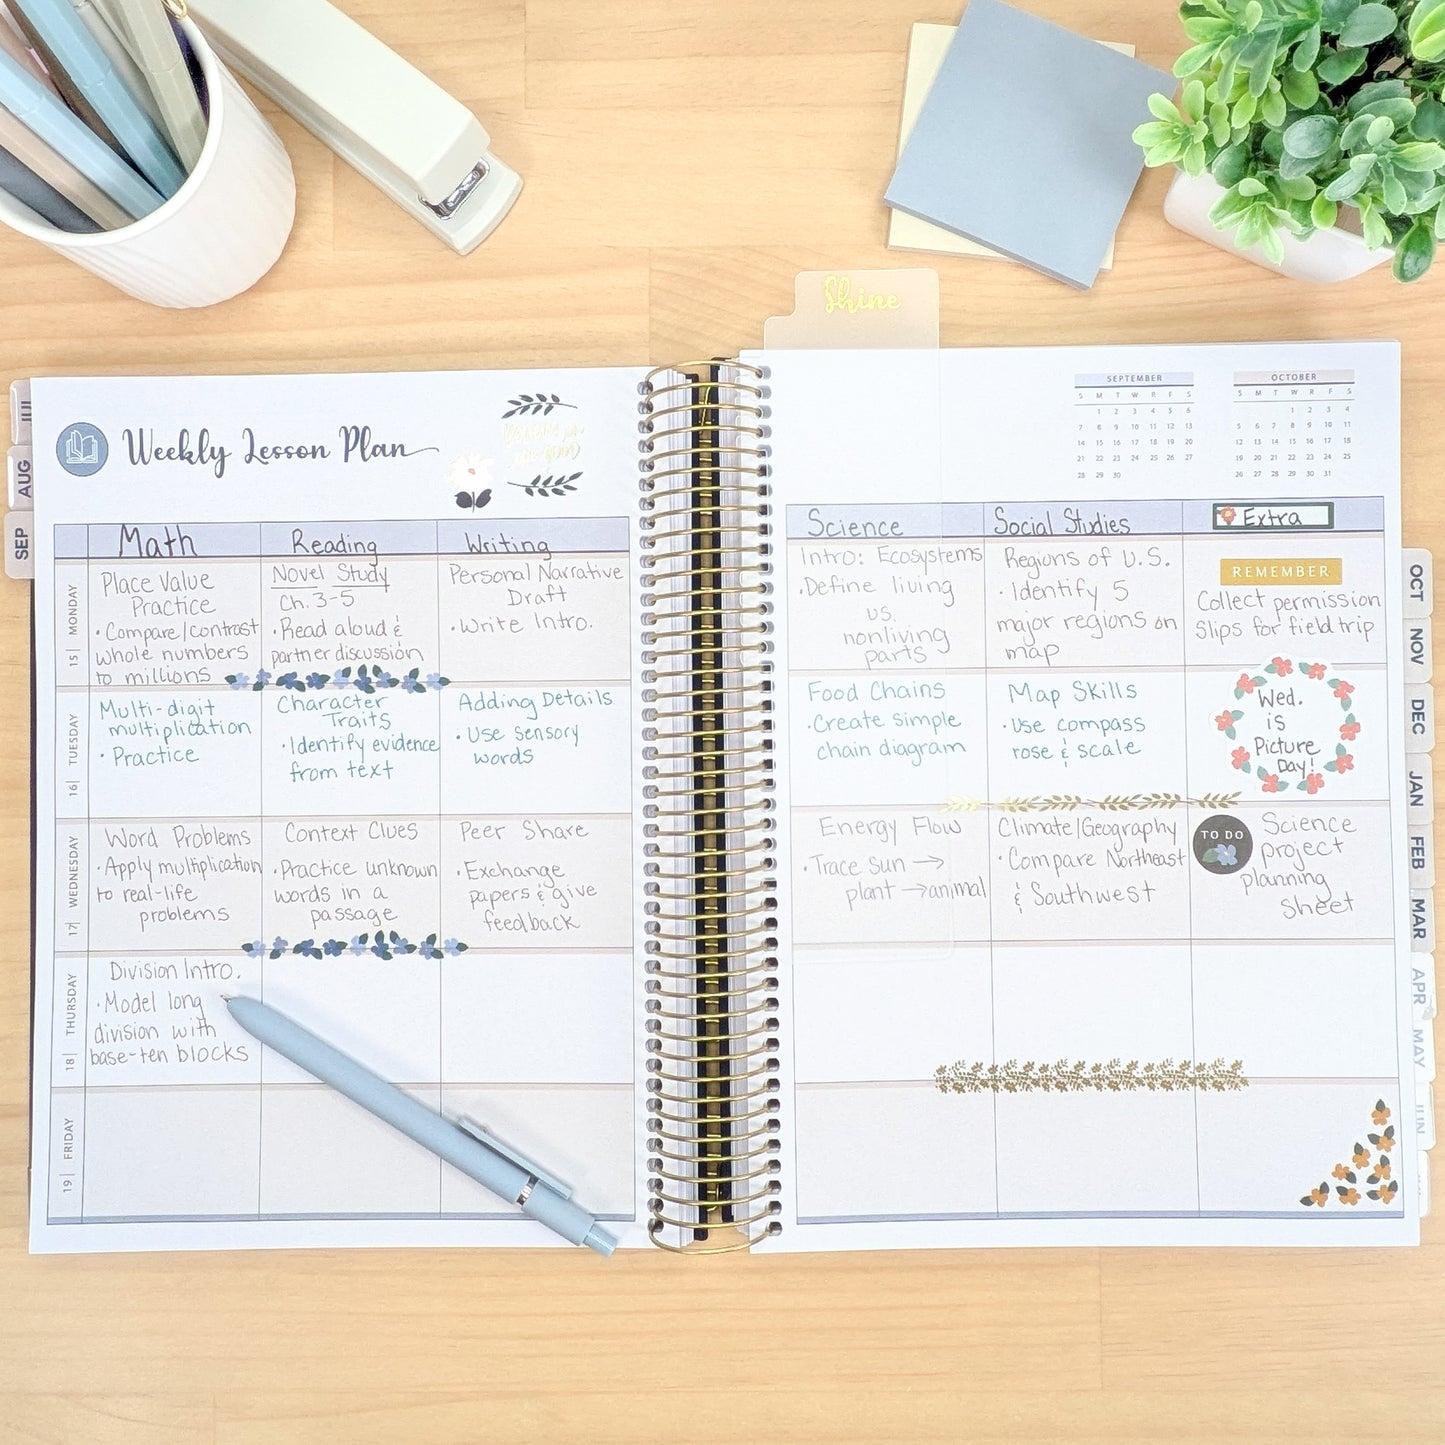 Shine
Weekly Lesson Plan
SEPTEMBER
S M T W T F S
1 2 3 4 5 6
7 8 9 10 11 12 13
14 15 16 17 18 19 20
21 22 23 24 25 26 27
28 29 30
OCTOBER
S M T W T F S
1 2 3 4
5 6 7 8 9 10 11
12 13 14 15 16 17 18
19 20 21 22 23 24 25
26 27 28 29 30 31
JUL
AUG
SEP
Math
Reading
Writing
Science
Social Studies
Extra
MONDAY
15
Place Value
Practice
• Compare/contrast
whole numbers
to millions
Novel Study
Ch. 3-5
• Read aloud &
partner discussion
Personal Narrative
Draft
• Write Intro.
Intro: Ecosystems
• Define living
vs.
nonliving
parts
Regions of U.S.
• Identify 5
major regions on
map
REMEMBER
Collect permission
Slips for field trip
TUESDAY
16
Multi-digit
multiplication
• Practice
Character
Traits
• Identify evidence
from text
Adding Details
• Use sensory
words
Food Chains
• Create simple
chain diagram
Map Skills
• Use compass
rose & scale
Wed.
is
Picture
Day!
WEDNESDAY
17
Word Problems
• Apply multiplication
to real-life
problems
Context Clues
• Practice unknown
words in a
passage
Peer Share
• Exchange
papers & give
feedback
Energy Flow
• Trace sun →
plant → animal
Climate/Geography
• Compare Northeast
& Southwest
TO DO
Science
project
planning
sheet
THURSDAY
18
Division Intro.
• Model long
division with
base-ten blocks
FRIDAY
19
OCT
NOV
DEC
JAN
FEB
MAR
APR
MAY
JUN